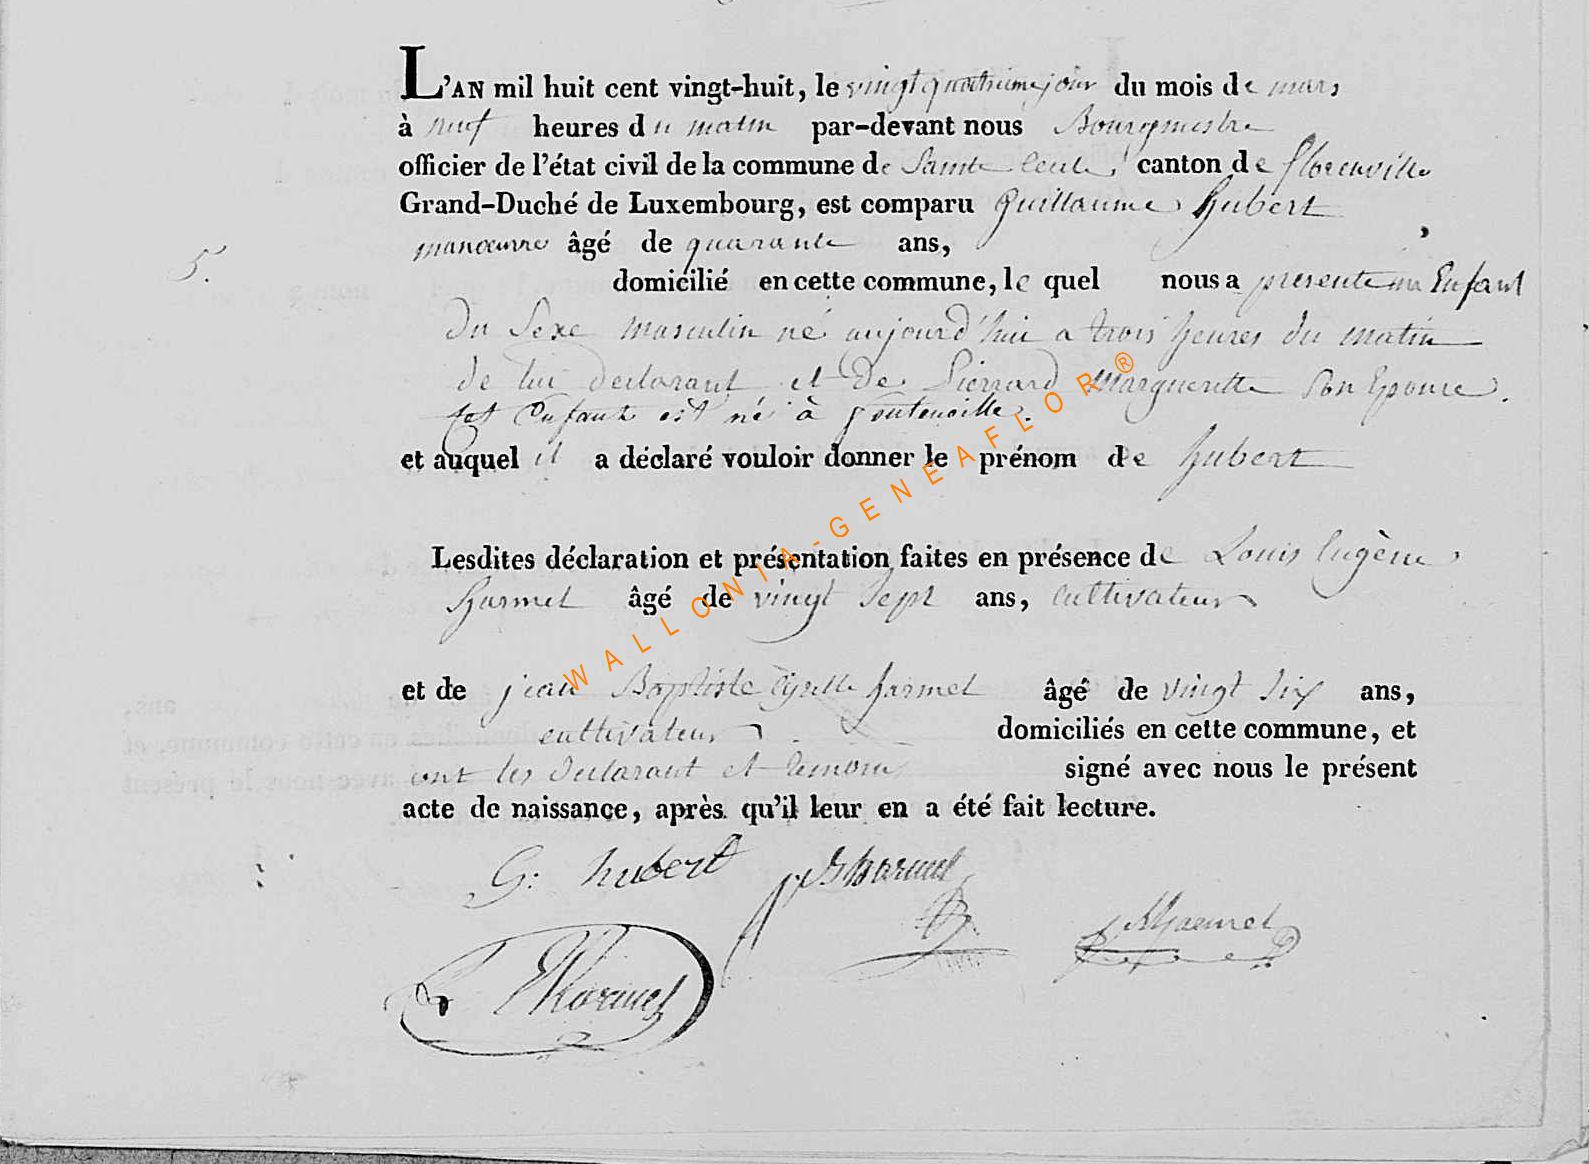 L'AN mil huit cent vingt-huit, le vingt quatrieme jour du mois de mars
à neuf heures du matin par-devant nous Bourgmestre
officier de l'état civil de la commune de Sainte Cecile, canton de florenville
Grand-Duché de Luxembourg, est comparu Guillaume hubert
manoeuvre âgé de quarante ans,
5. domicilié en cette commune, le quel nous a presenté un Enfant
du Sexe masculin né aujourd'hui a trois heures du matin
de lui declarant et de Pierrard Margueritte son Epouse.
Cet Enfant est né à fontenoille.
et auquel il a déclaré vouloir donner le prénom de hubert
Lesdites déclaration et présentation faites en présence de Louis Eugène
harmel âgé de vingt sept ans, cultivateur
et de jean Baptiste Cyrille harmel âgé de vingt six ans,
cultivateur domiciliés en cette commune, et
ont les declarant et temoins signé avec nous le présent
acte de naissance, après qu'il leur en a été fait lecture.
G: hubert harmel
harmel
harmel
WALLONIA-GENEAFLOR®